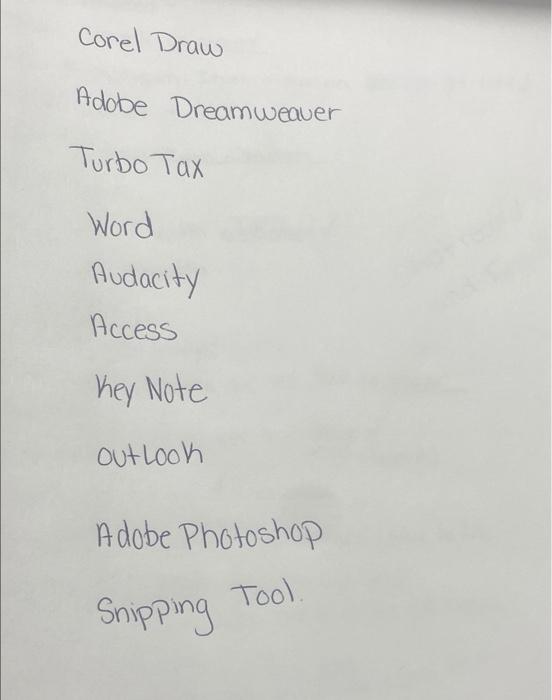 Corel Draw
Adobe Dreamweaver
Turbo Tax
Word
Audacity
Access
Key Note
outLook
Adobe Photoshop
Snipping Tool.